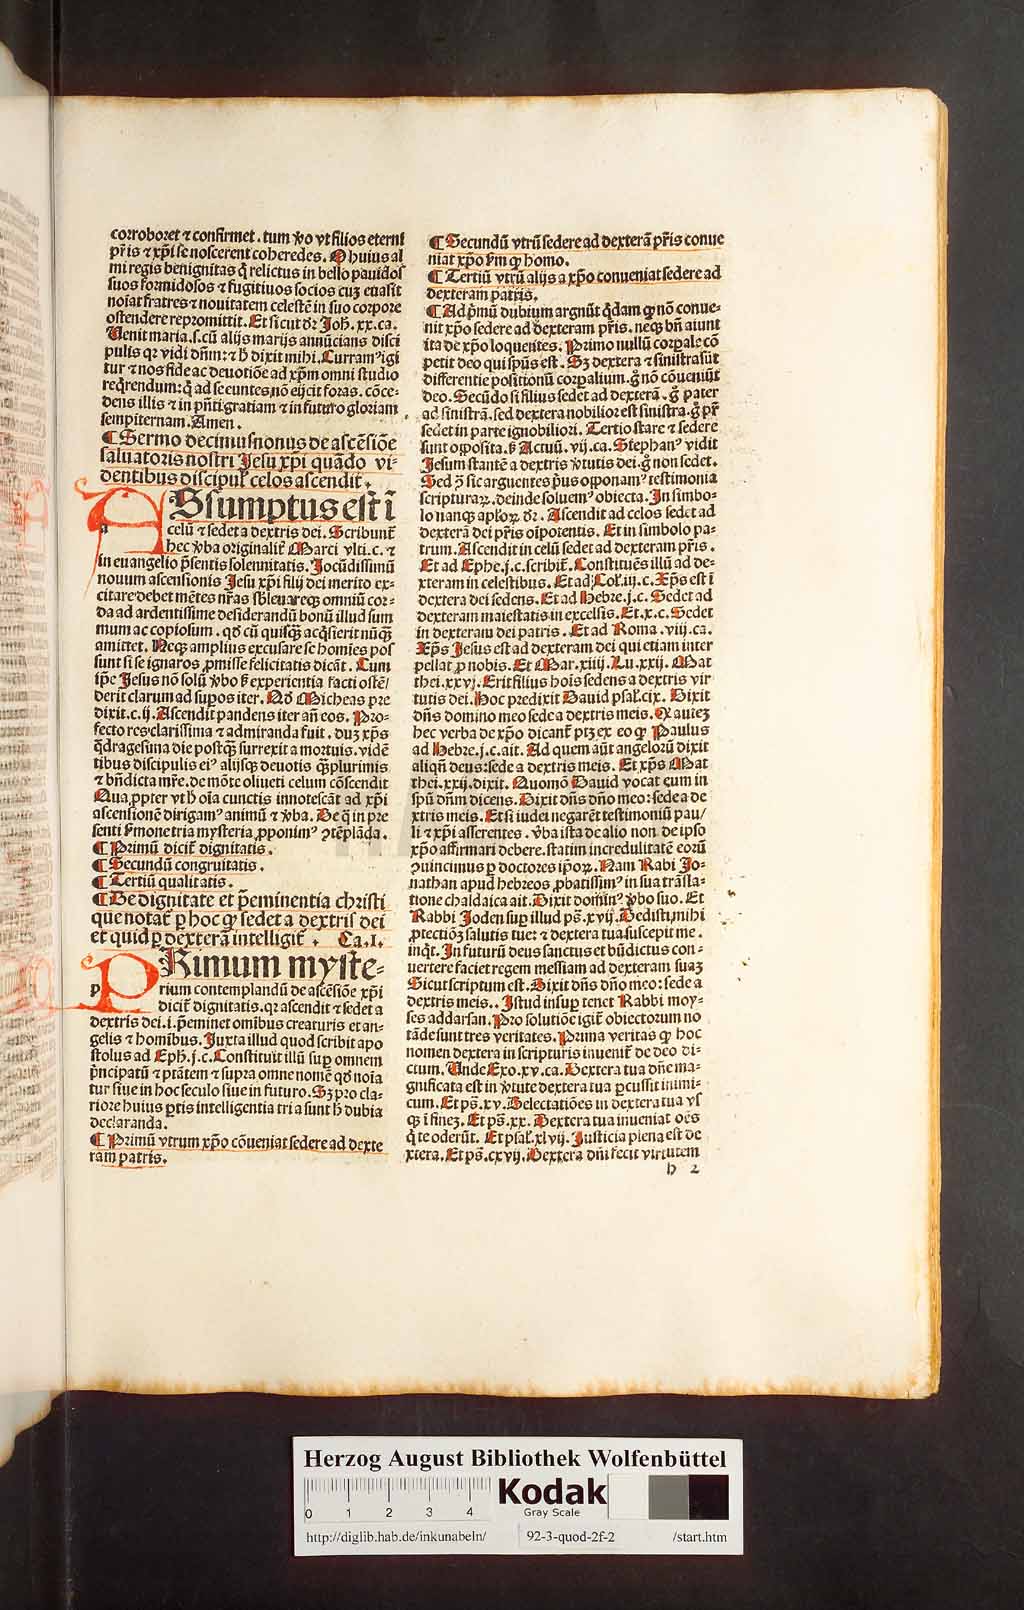 corroboret ⁊ confirmet. tum ꝟo vt filios eterni
pr̄is ⁊ xp̄i se noscerent coheredes. O huius al
mi regis benignitas q̄ relictus in bello pauidos
suos formidosos ⁊ fugitiuos socios cuꝫ euasit
noīat fratres ⁊ nouitatem celestē in suo corpore
ostendere repromittit. Et sicut dr̄ Joh̄. xx. ca.
Uenit maria. s. cū alijs marijs annūcians disci
pulis qꝛ vidi dn̄m: ⁊ h̄ dixit mihi. Curramꝰ igi
tur ⁊ nos fide ac deuotiōe ad xp̄m omni studio
req̄rendum: q̄ ad se euntes nō eijcit foras. cōce-
dens illis ⁊ in pn̄ti gratiam ⁊ in futuro gloriam
sempiternam. Amen.
¶ Sermo decimusnonus de ascēsiōe
saluatoris nostri Jesu xp̄i quādo vi-
dentibus discipul̕ celos ascendit.
ASsumptus est ī
a
celū ⁊ sedet a dextris dei. Scribunt̄
hec ꝟba originalit̄ Marci vlti. c. ⁊
in euangelio p̄sentis solennitatis. Jocūdissimū
nouum ascensionis Jesu xp̄i filij dei merito ex-
citare debet mētes nr̄as sb̄leuareqꝫ omniū cor-
da ad ardentissime desiderandū bonū illud sum
mum ac copiosum. qd̄ cū quisqꝫ acq̄sierit nūqꝫ
amittet. Neqꝫ amplius excusare se homies pos
sunt si se ignaros ꝓmisse felicitatis dicāt. Cum
ip̄e Jesus nō solū ꝟbo ß experientia facti ostē/
derit clarum ad supos iter. Qd̄ Micheas pre
dixit. c. ij. Ascendit pandens iter an̄ eos. Pro-
fecto res clarissima ⁊ admiranda fuit. duꝫ xp̄s
q̄dragesima die postqꝫ surrexit a mortuis. vidē
tibus discipulis eiꝰ alijsqꝫ deuotis qꝫplurimis
⁊ bn̄dicta mr̄e. de mōte oliueti celum cōscendit
Qua ꝓpter vt h̄ oīa cunctis innotescāt ad xp̄i
ascensionē dirigamꝰ animū ⁊ ꝟba. De q̄ in pre
senti ẜmone tria mysteria ꝓponimꝰ ꝯtēplāda.
¶ Primū dicit̄ dignitatis.
¶ Secundū congruitatis.
¶ Tertiū qualitatis.
¶ De dignitate et p̄eminentia christi
que notat̄ ꝑ hoc ꝙ sedet a dextris dei
et quid ꝑ dexterā intelligit̄. Ca. I.
PRimum myste-
p
rium contemplandū de ascēsiōe xp̄i
dicit̄ dignitatis. qꝛ ascendit ⁊ sedet a
dextris dei. i. p̄eminet omībus creaturis et an-
gelis ⁊ homībus. Juxta illud quod scribit apo
stolus ad Eph̄. j. c. Constituit illū suꝑ omnem
p̄ncipatū ⁊ ptātem ⁊ supra omne nomē qd̄ noīa
tur siue in hoc seculo siue in futuro. Sꝫ pro cla-
riore huius ꝑtis intelligentia tria sunt h̄ dubia
declaranda.
¶ Primū vtrum xp̄o cōueniat sedere ad dexte
ram patris.
¶ Secundū vtrū sedere ad dexterā pr̄is conue
niat xp̄o ẜm ꝙ homo.
¶ Tertiū vtrū alijs a xp̄o conueniat sedere ad
dexteram patris.
¶ Ad p̄mū dubium arguūt q̄dam ꝙ nō conue-
nit xp̄o sedere ad dexteram pr̄is. neqꝫ bn̄ aiunt
ita de xp̄o loquentes. Primo nullū corpale cō
petit deo qui spūs est. Sꝫ dextera ⁊ sinistra sūt
differentie positionū corpalium. g̊ nō cōueniūt
deo. Secūdo si filius sedet ad dexterā. g̊ pater
ad sinistrā. sed dextera nobilior est sinistra. g̊ pr̄
sedet in parte ignobiliori. Tertio stare ⁊ sedere
sunt opposita. ß Actuū. vij. ca. Stephanꝰ vidit
Jesum stantē a dextris ꝟtutis dei. g̊ non sedet.
Sed ꝙ sic arguentes p̄us opponamꝰ testimonia
scripturaꝝ. deinde soluemꝰ obiecta. In simbo-
lo nanqꝫ apl̕oꝝ dr̄. Ascendit ad celos sedet ad
dexterā dei pr̄is oīpotentis. Et in simbolo pa-
trum. Ascendit in celū sedet ad dexteram pr̄is.
Et ad Ephe. j. c. scribit̄. Constituēs illū ad de-
xteram in celestibus. Et ad Col̕. iij. c. Xp̄s est ī
dextera dei sedens. Et ad Hebre. j. c. Sedet ad
dexteram maiestatis in excelsis. Et. x. c. Sedet
in dexteram dei patris. Et ad Roma. viij. ca.
Xp̄s Jesus est ad dexteram dei qui etiam inter
pellat ꝓ nobis. Et Mar. xiiij. Lu. xxij. Mat
thei. xxvj. Erit filius hoīs sedens a dextris vir
tutis dei. Hoc predixit Dauid psal̕. cix. Dixit
dn̄s domino meo sede a dextris meis. Ꝙ auteꝫ
hec verba de xp̄o dicant̄ ptꝫ ex eo ꝙ Paulus
ad Hebre. j. c. ait. Ad quem aūt angelorū dixit
aliqn̄ deus: sede a dextris meis. Et xp̄s Mat
thei. xxij. dixit. Quomō Dauid vocat eum in
spū dn̄m dicens. Dixit dn̄s dn̄o meo: sede a de
xtris meis. Et si iudei negarēt testimoniū pau/
li ⁊ xp̄i asserentes. ꝟba ista de alio non de ipso
xp̄o affirmari debere. statim incredulitatē eorū
ꝯuincimus ꝑ doctores ip̄oꝝ. Nam Rabi Jo-
nathan apud hebreos ꝓbatissimꝰ in sua trāsla-
tione chaldaica ait. Dixit dominꝰ ꝟbo suo. Et
Rabbi Joden suꝑ illud ps̄. xvij. Dedisti mihi
ꝓtectiōꝫ salutis tue: ⁊ dextera tua suscepit me.
inq̄t. In futurū deus sanctus et bn̄dictus con-
uertere faciet regem messiam ad dexteram suaꝫ
Sicut scriptum est. Dixit dn̄s dn̄o meo: sede a
dextris meis. Istud insuꝑ tenet Rabbi moy-
ses addarsan. Pro solutiōe igit̄ obiectorum no
tāde sunt tres veritates. Prima veritas ꝙ hoc
nomen dextera in scripturis inuenit̄ de deo di-
ctum. Unde Exo. xv. ca. Dextera tua dn̄e ma-
gnificata est in ꝟtute dextera tua ꝑcussit inimi-
cum. Et ps̄. xv. Delectatiōes in dextera tua vs
qꝫ ī fineꝫ. Et ps̄. xx. Dextera tua inueniat oēs
q̄ te oderūt. Et psal̕. xlvij. Justicia plena est de
xtera. Et ps̄. cxvij. Dextera dn̄i fecit virtutem
h 2
Herzog August Bibliothek Wolfenbüttel
0 1 2 3 4
Kodak
Gray Scale
http://diglib.hab.de/inkunabeln/ 92-3-quod-2f-2 /start.htm